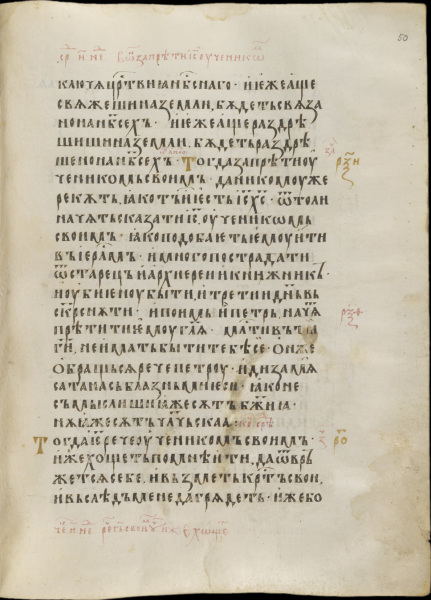 50
ключа црⷭ҇твиꙗ нбⷭ҇наго · и иеже аще
свѧжеши на земли, бѫдеть свѧза
но на нб҃сехъ · и иеже аще раздрѣ
шиши на земли, бѫдеть раздрѣ
шено на нб҃сехъ · Тогда запрѣти оу
ченикомь своимь · да никомоуже
рекѫть, ꙗко тъ иесть і҃с х҃с · ѿтоли
начѧть сказати і҃с, оученикѡмь
своимь · ꙗко подобаеть емоу ити
въ іер҃лмь · и много пострадати
ѿ старець и архиереи и книжникь ·
и оубиеноу быти, и трети дн҃ь вь
скрⷭ҇нѫти · и поимь и петрь, начѧ
прѣтити емоу гл҃ѧ · млⷭ҇тивь ты
г҃и, не имать быти тебѣ се · Он же
обращьсѧ рече петроу · иди за мноѫ
сатана съблазнь ми иеси · ꙗко не
съмыслиши ꙗже сѫть бж҃иꙗ ·
нѫ ꙗже сѫть чл҃чьскаа ·
Тогда іс҃ рече оученикомь своимь ·
иже хощеть по мнѣ ити, да ѿврь
жетсѧ себе, и възметь крⷭ҇ть свои,
и въ слѣдъ мене да грѧдеть · иже бо